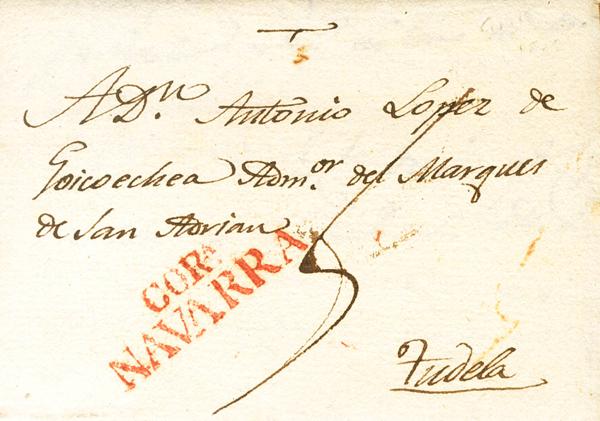 A Dn. Antonio Lopez de
Goicoechea Admor. del Marques
de San Adrian
CORA.
NAVARRA
Tudela